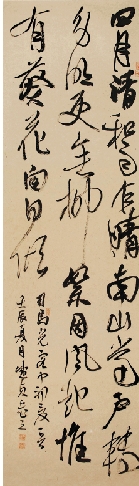 四月清和雨乍晴南山当户轉
分明更無柳絮因風起惟
有葵花向日傾
司馬光客中初夏一首
壬辰夏月